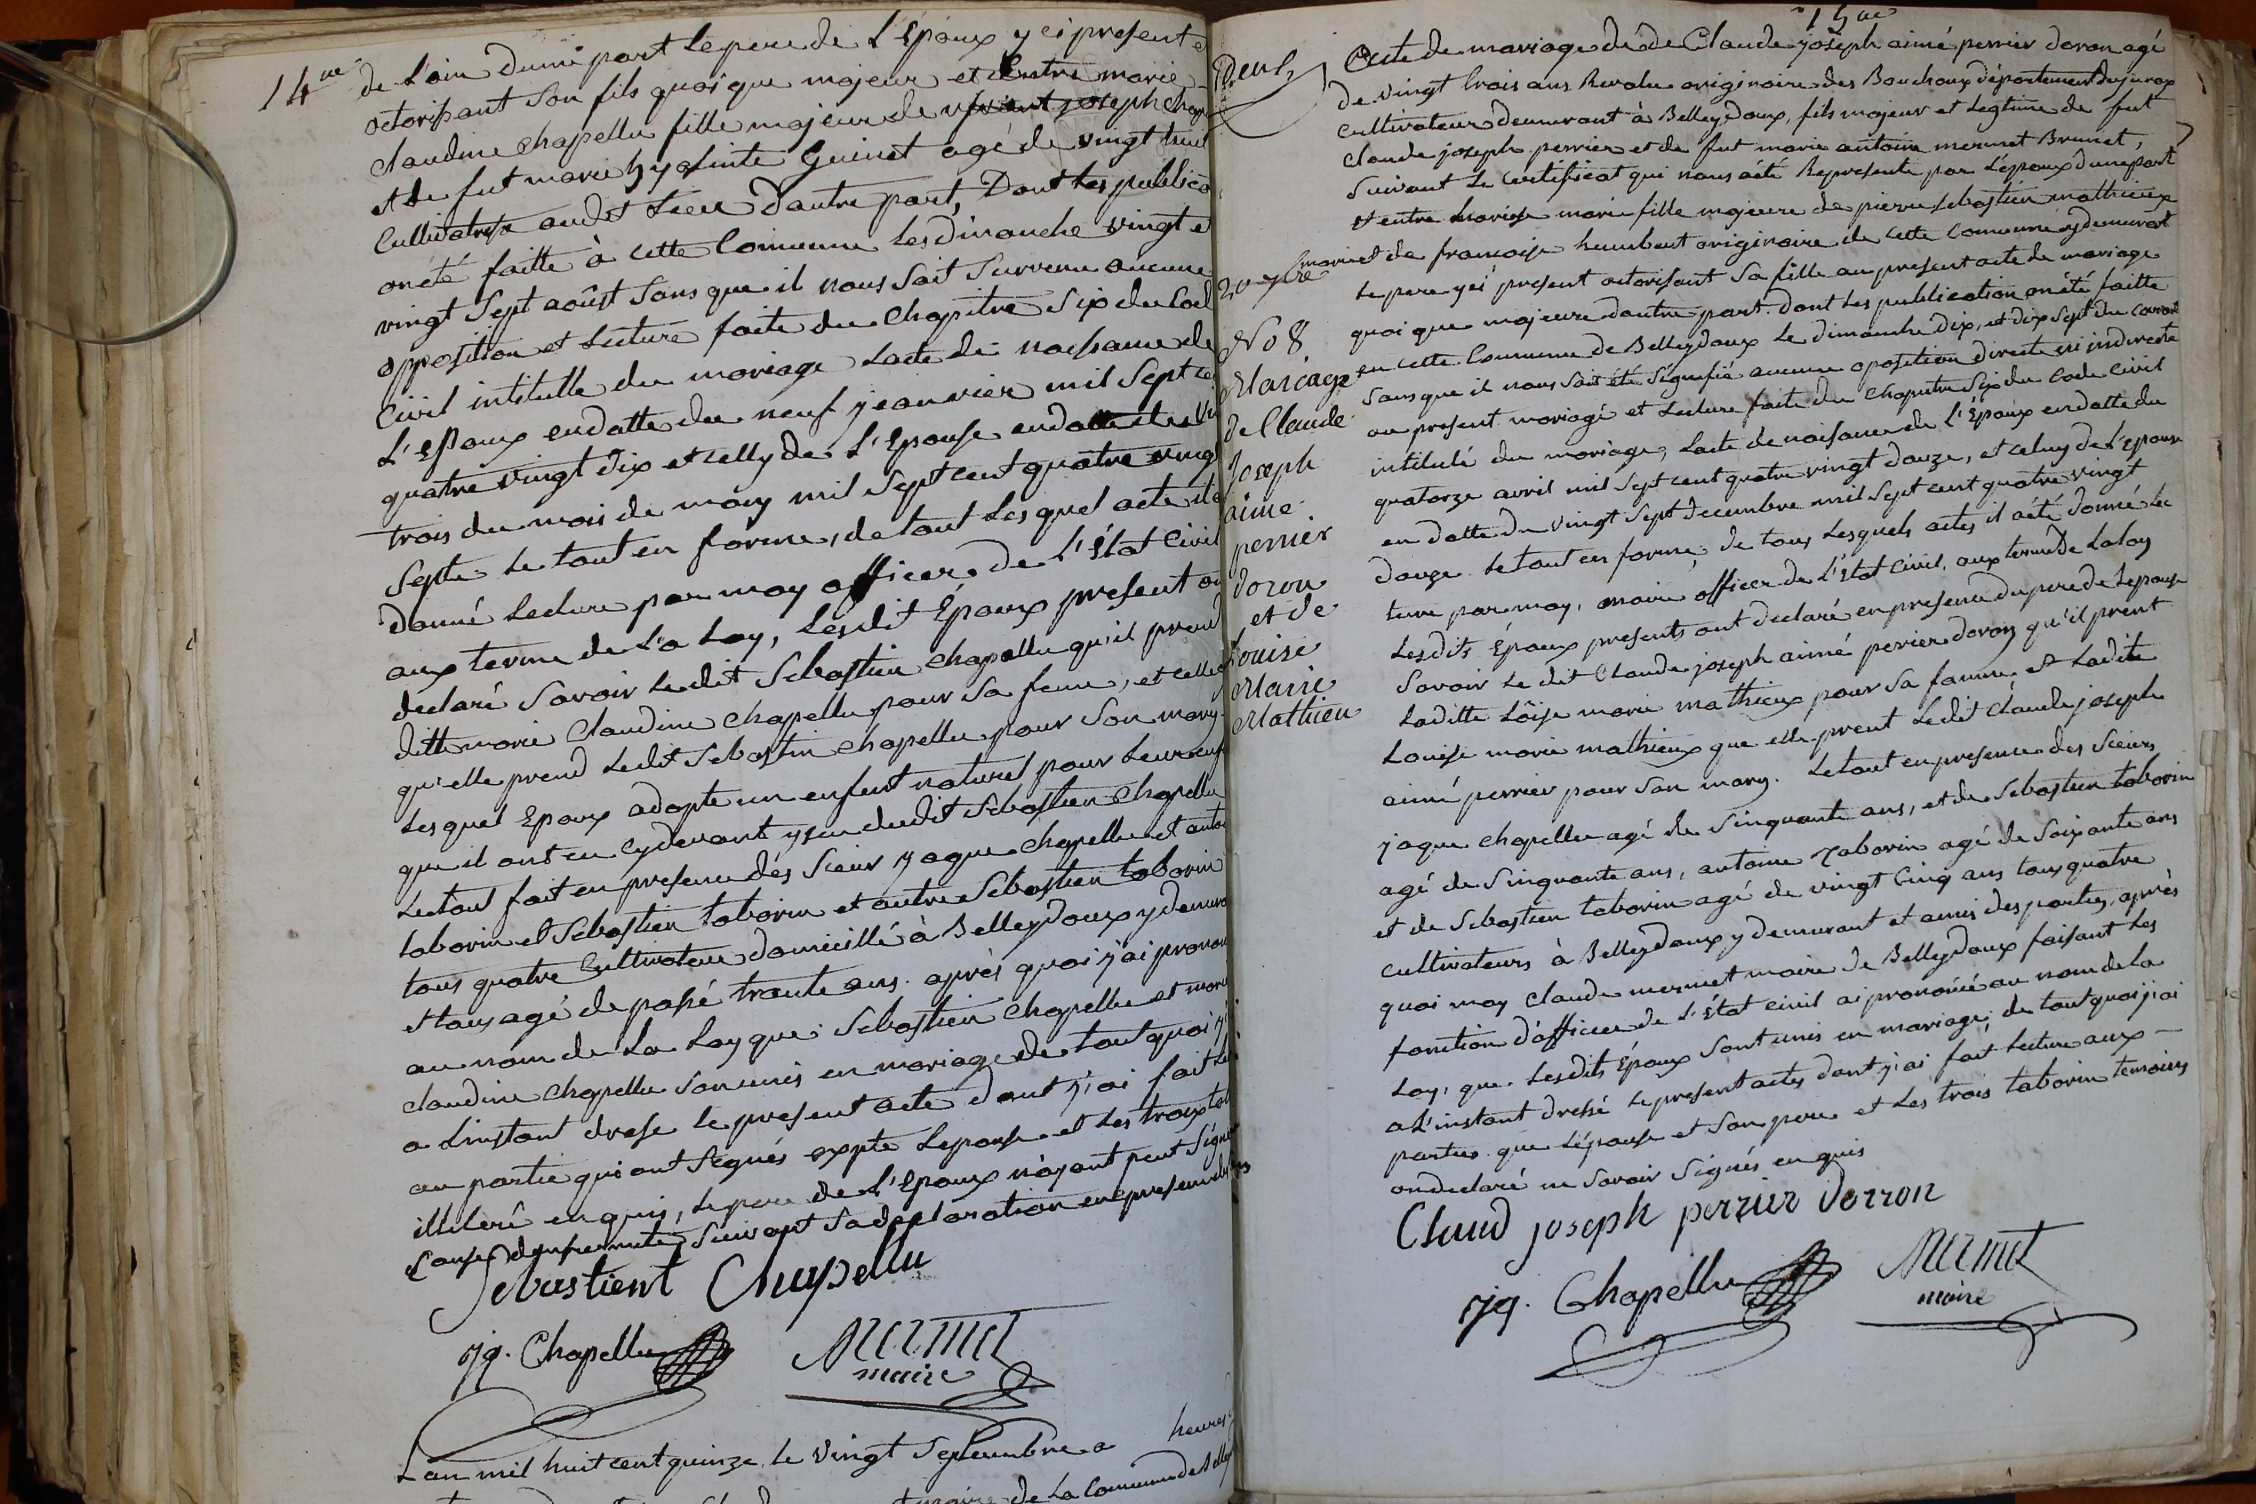 14me
de Lain dunne part Le pere de L'Epoux y ci present et
octorisant son fils quoi que majeur et Entre marie
claudine chapellu fille majeur de vivant joseph chap
et de fut marie hyasinte Guinet agé de vingt huit
Cultivatrise audit Lieu d'autre part, Dont les publica
on été faitte à cette Commune Les dimanche vingt e
vingt sept août sans que il nous soit survenu aucune
opposition et Lecture faite du Chapitre six du Cod
Civil intitulle du mariage Lacte de naissance de
L'Epoux en datte du neuf jeanvier mil sept ce
quatre vingt dix et celly de L'Epouse en datte du
trois du mois de may mil sept cent quatre ving
septe Le tout en forme, de tout Les quel acte il a
donné Lecture par moy officer de L'Etat Civil
aux terme de La Loy, Lesdit Epoux present on
declaré savoir Ledit Sebastien chapellu qu'il prend
ditte marie Claudine chapellu pour sa femme, et celle
qu'elle prend Ledit Sebastin chapellu pour son mary.
Les quel Epoux adopte un enfent naturel pour Leur enf
que il ont eu cy devant y su dudit Sebastien chapellu
Le tout fait en presence dés sieur yaque chapellu et anto
taborin et Sebastien taborin et autre Sebastien taborin
tous quatre Cultivateur domicillé à Belleydoux y demura
et tous agé de passé trante ans. après quoi j'ai pronon
au nom de La Loy que Sebastien chapellu et marie
claudine chapellu son unis en mariage de tout quoi j'
a Linstant drese le present acte dont j'ai fait Le
au partie qui ont signés expte Lepouse et Les trois tab
illiteré en quis, Le pere de L'Epoux n'ayant peut signé
Cause d'infirmité suivant sa declaration en presence
Sebastient Chapellu
Jq. Chapellu
Mermet
maire
L'an mil huit cent quinze Le vingt septembre a heures
maire de La Commune de Belley
15me
20 7bre
No 8
Mariage
de Claude
Joseph
aimé
perrier
doron
et de
Louise
Marie
Mathieu
Acte de mariage de de Claude joseph aimé perrier doron agé
de vingt trois ans Revolu originaire des Bouchoux département du jurax
cultivateur demurant à Belleydoux, fils majeur et Legtime de fut
claude joseph perrier et de fut marie antoine mermet Brunet,
suivant Le certificat qui nous a été Représente par L'époux d'une part
et entre Louise marie fille majeure de pierre sebastien mathieux
et de francoise humbert originaire de cette commune y demurant
Le pere y ci present octorisant sa fille au present acte de mariage
quoi que majeure dautre part. dont Les publication on été faitte
en cette Commune de Belleydoux Le dimanche dix, et dix sept du courant
sans que il nous soit été signifié aucune oposition direcete ni indirecte
au present mariagé et Lecture faite du Chapitre six du Code Civil
intitulé du mariage, Lacte de naissance de L'Epoux en datte du
quatorze avril mil sept cent quatre vingt douze, et celuy de L'epouse
en datte du vingt sept decembre mil sept cent quatre vingt
douze. Le tout en forme, de tous Lesquels actes il a été donné Lec
ture par moy, maire officer de L'Etat Civil, aux terme de La Loy
Lesdits Epoux presents ont declaré en presence du pere de Lepouse
savoir Le dit Claude joseph aimé perrier doron qu'il prent
Laditte Löise marie mathieux pour sa famme et Ladite
Louise marie mathieux que elle prent Ledit claude joseph
aimé perrier pour son mary. Le tout en presence des sieurs
yaque chapellu agé de sinquante ans, et de sebastien taborin
agé de sinquante ans, antoine Taborin agé de soixante ans
et de Sebastien taborin agé de vingt Cinq ans tous quatre
cultivateurs à Belleydoux y demurant et amis des parties, après
quoi moy claude mermet maire de Belleydoux faisant Les
fonction d'officer de L'état civil ai prononcé au nom de La
Loy, que Lesdits Epoux sont unis en mariage, de tout quoi j'ai
a L'instant dressé Le present actes dont j'ai fait Lecture aux
parties que L'épouse et son pere et Les trois taborin temoins
on declaré ne savoir signés en quis
Claud joseph perrier dorron
Jq. Chapellu
Mermet
maire